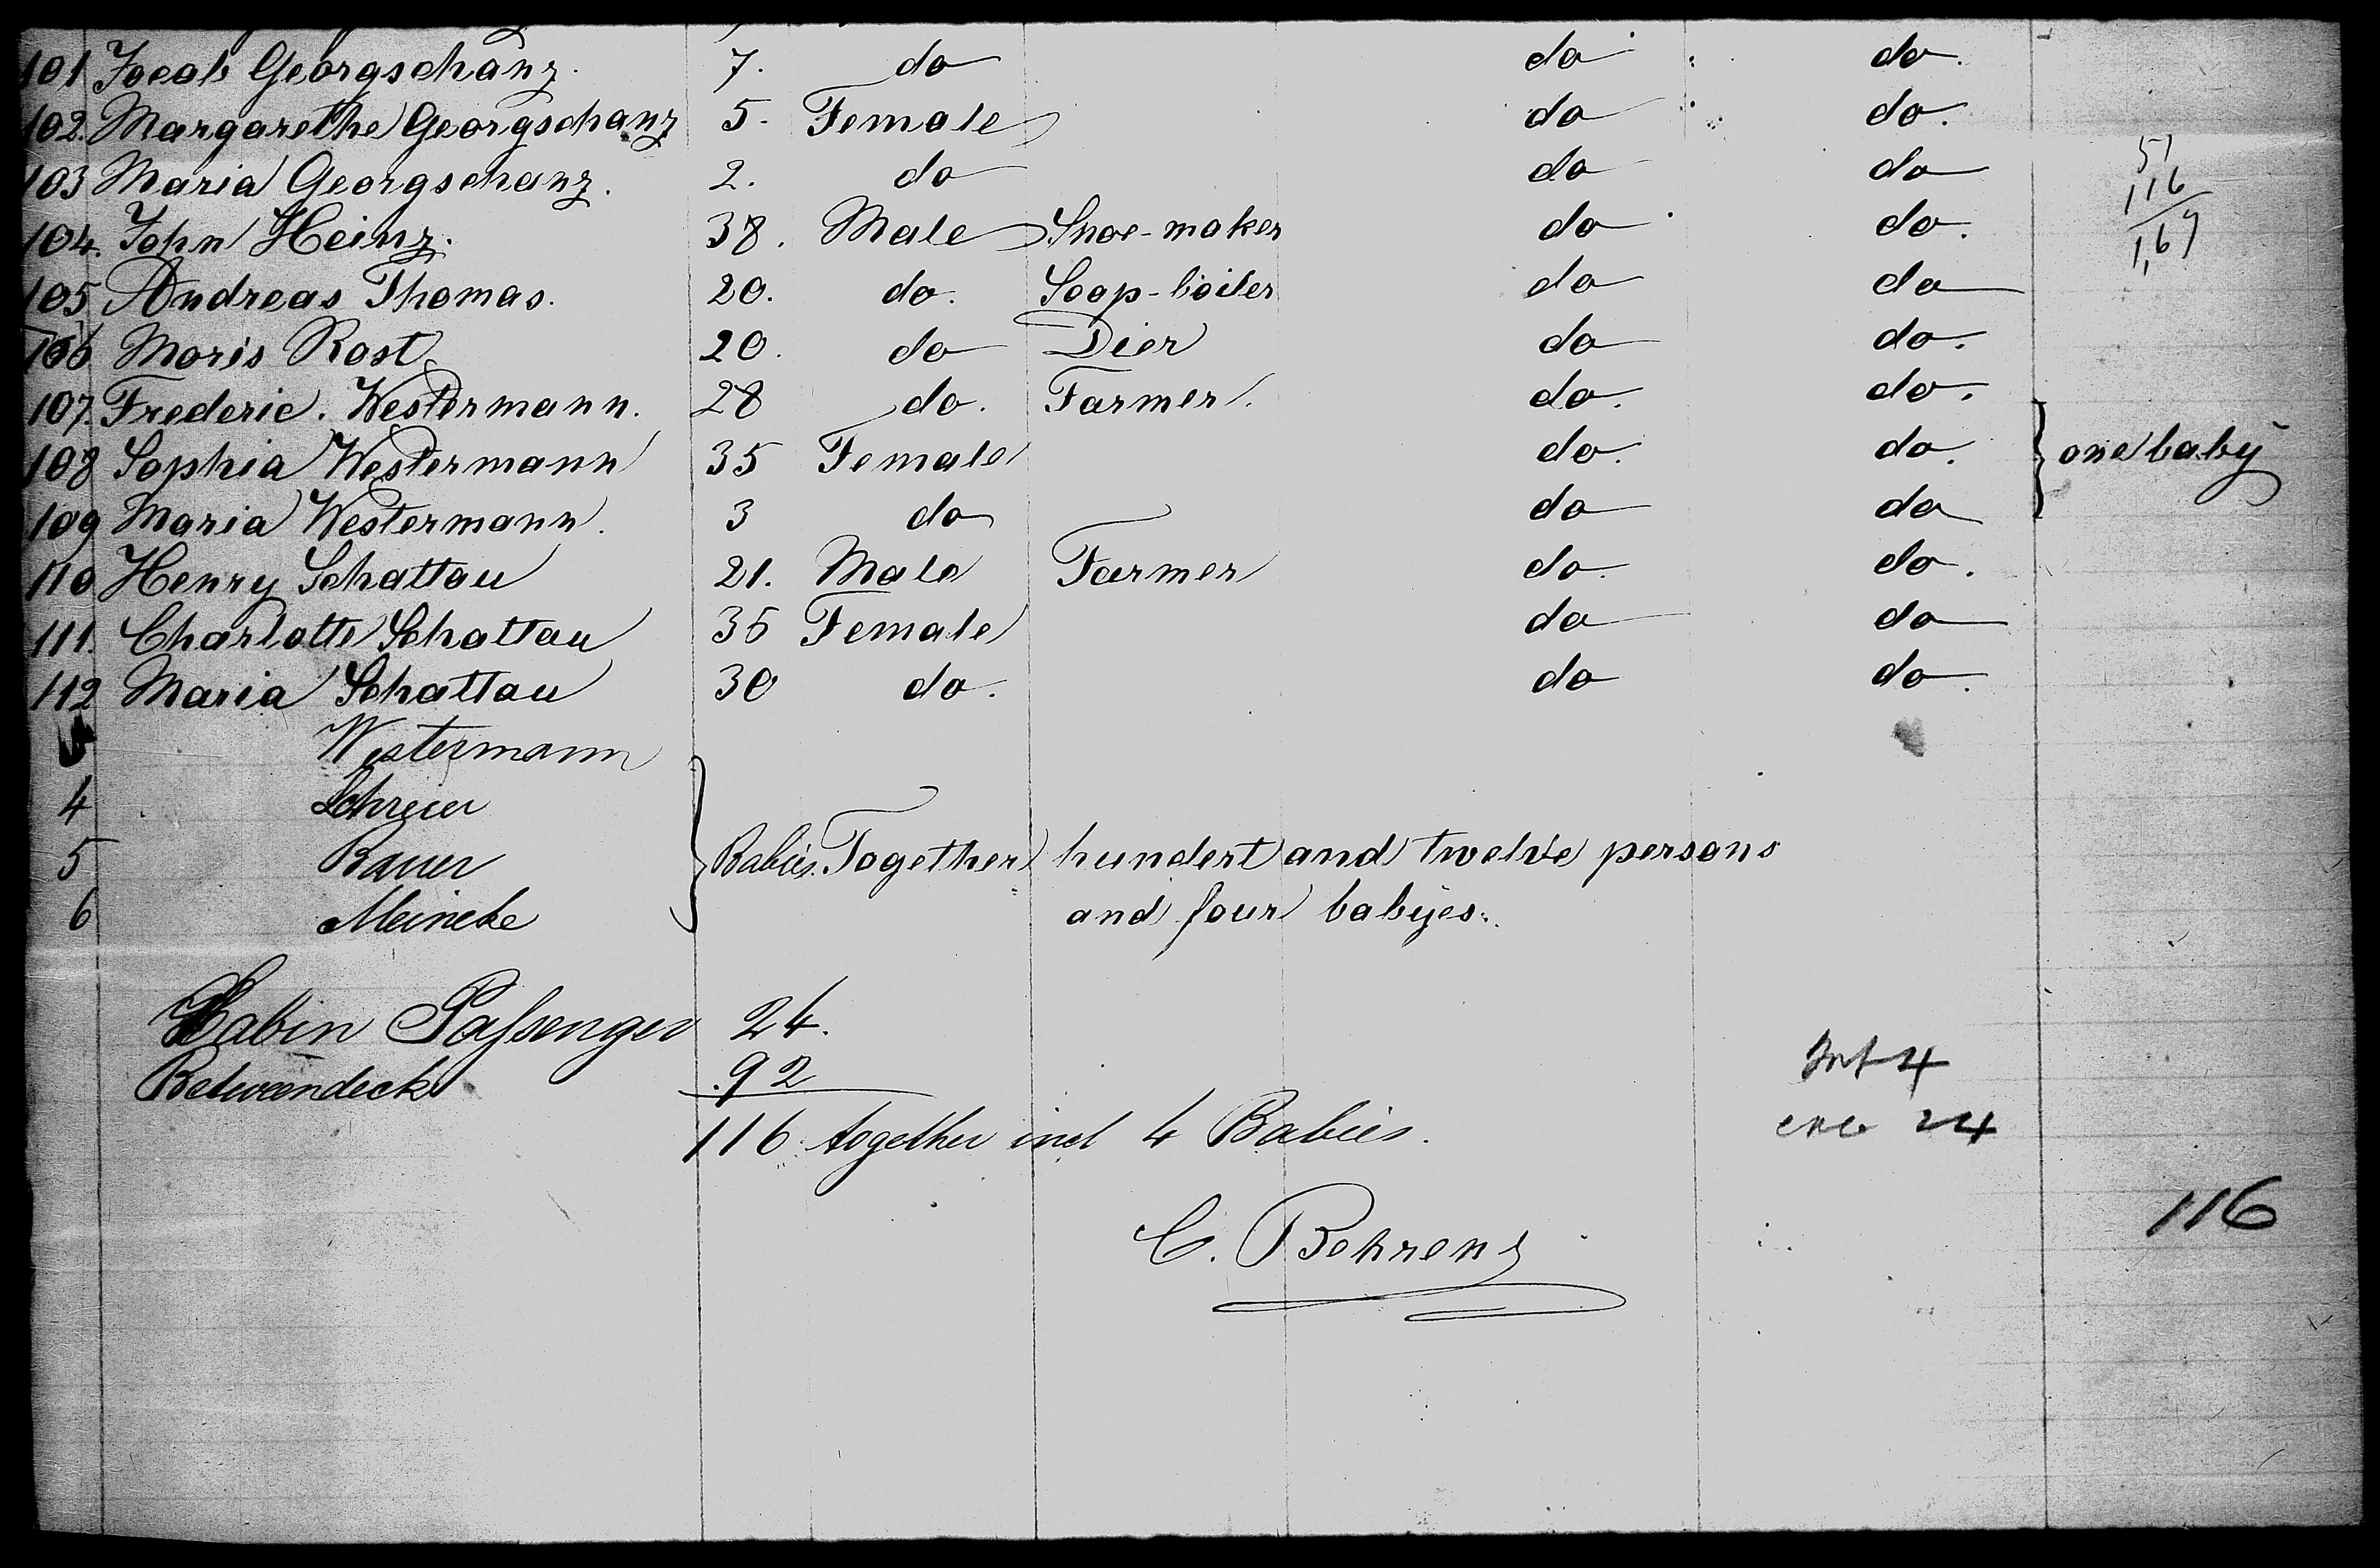 101 Jocob Georgschanz. 7. do do do.
102. Margarethe Georgschanz 5. Female do do.
103 Maria Georgschanz. 2. do do do
104. John Heinz. 38. Male Shoe-maker do do.
105 Andreas Thomas. 20. do. Soap-boiler do do
106 Moris Rost 20. do Dier do do.
107. Frederic. Westermann. 28 do. Farmer. do. do.
108 Sophia Westermann 35 Female do. do. one baby
109 Maria Westermann. 3 do do do
110 Henry Schattau 21. Male Farmer do. do.
111. Charlotte Schattau 36 Female do do
112 Maria Schattau 30 do. do do.
Westermann
4 Schreier
5 Bauer Babies. Together hundert and twelve persons
6 Meineke and four babyes.
51
116
167
Cabin Passenger 24.
Betweendeck 92
116 together incl 4 Babies.
Inf 4
24
116
C. Behrens